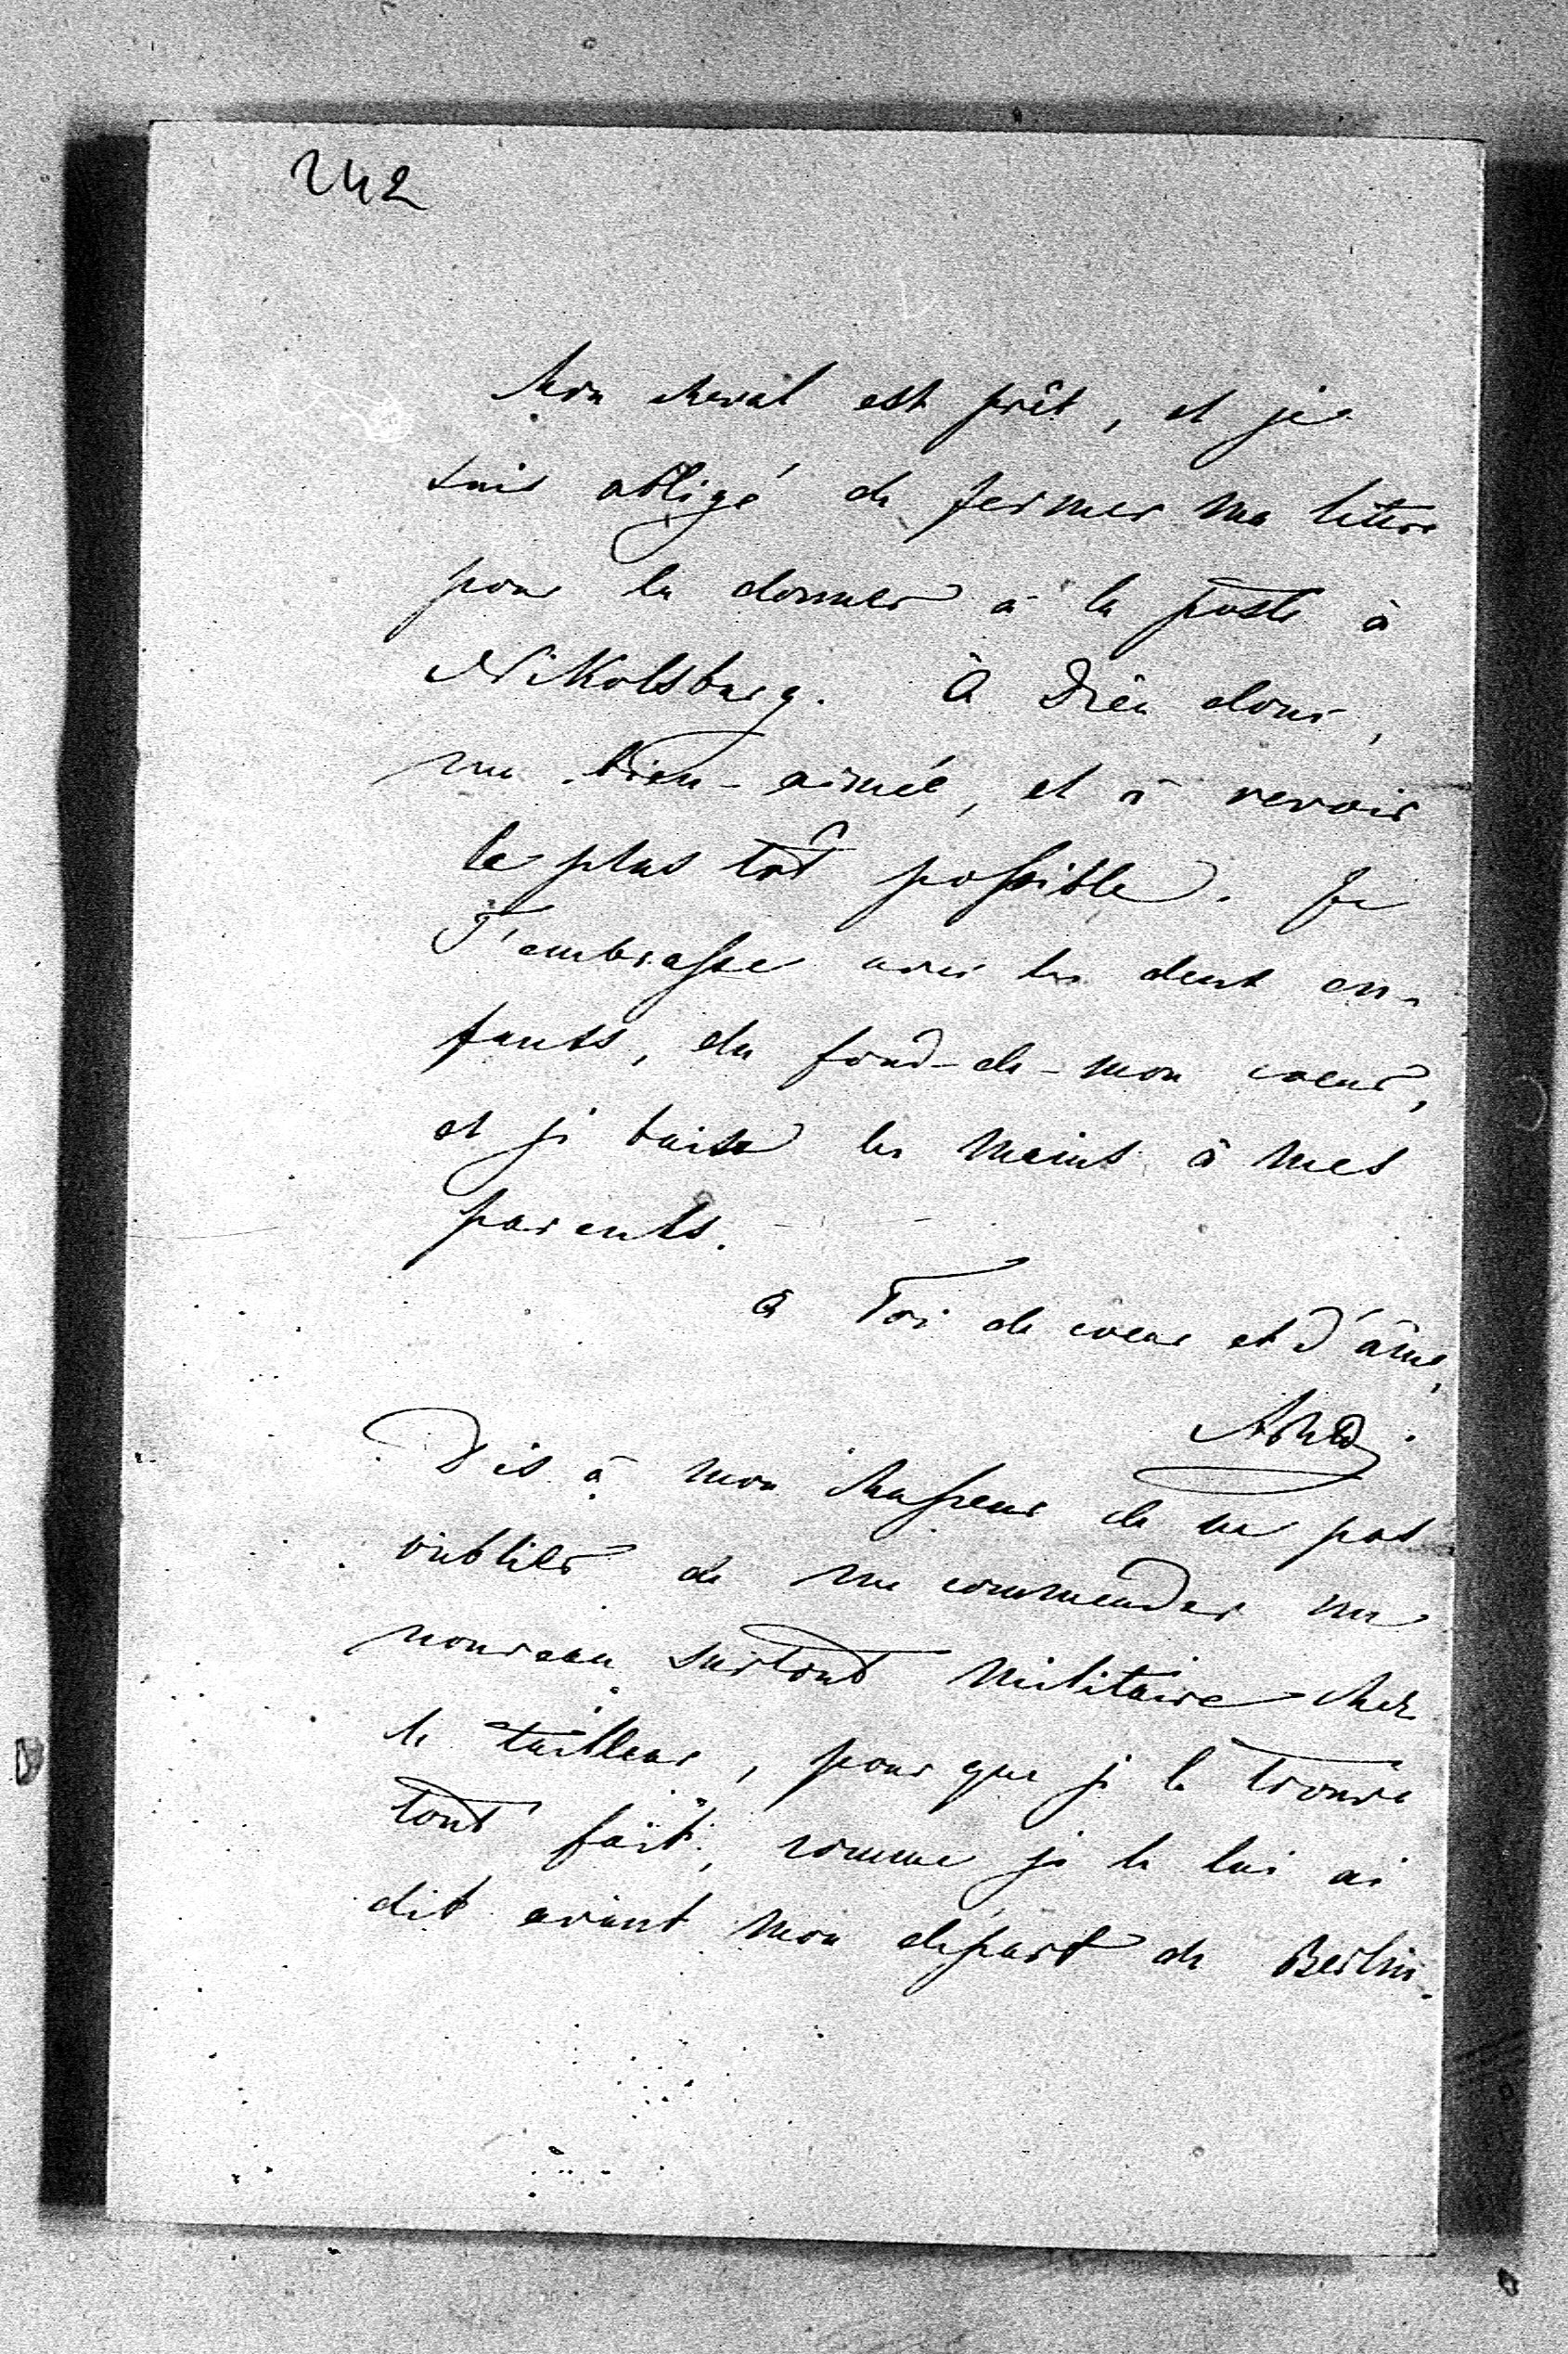 242
Mon cheval est prêt, et je
suis obligé de fermer ma lettre
pour la donner à la poste à
Nikolsburg. À Dieu donc,
ma bien-aimée, et à revoir
le plus tôt possible. Je
T'embrasse avec les deux en-
fants, du fond-de-mon coeur,
et je baise les mains à mes
parents.
a Toi de coeur et d'âme,
Dis à mon chasseur de ne pas
oublier de me commander un
nouveau surtout militaire chez
le tailleur, pour que je le trouve
tout fait, comme je le lui ai
dit avant mon départ de Berlin.